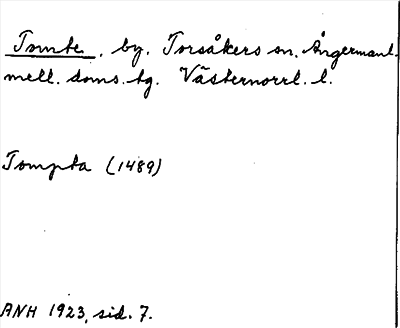 Tomte, by. Torsåkers sn. Ångermanl.
mell. doms. tg. Västernorrl. l.
Tompta (1489)
ANH 1923, sid. 7.